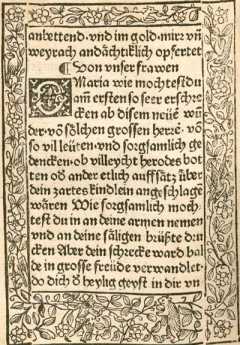 anbettend·vnd im gold·mirr vñ
weyrach andächtiklich opfertet
¶ Von vnser frawen
O Maria wie mochtest du
am̃ ersten so seer erschre
cken ab disem neüẽ wũ
der võ sölchen grossen herrẽ· võ
so vil leüten·vnd sorgsamlich ge
dencken·ob villeycht herodes bot
ten oḋ ander etlich auffsätz über
dein zartes kindlein angeschlagẽ
wären Wie sorgsamlich moch
test du in an deine armen nemen
vnd an deine säligen brüßte dru
cken Aber dein schrecke ward bal
de in grosse freüde verwandlet·
do dich ḋ heylig geyst in dir vn